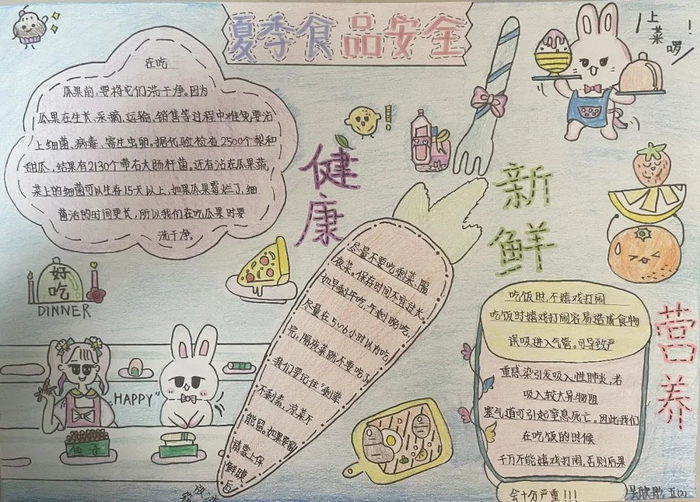 夏季食品安全
上菜啰!
在吃
瓜果前,要将它们洗干净。因为
瓜果在生长、采摘、运输、销售等过程中难免要沾
上细菌、病毒、寄生虫卵。据化验检查2500个梨和
甜瓜,结果有2130个带有大肠杆菌。还有沾在瓜果蔬
菜上的细菌可以生存15天以上,如果瓜果霉烂了,细
菌活的时间更长,所以我们在吃瓜果时要
洗干净。
健康
新鲜
营养
好吃
DINNER
HAPPY"
尽量不要吃剩菜、隔
夜菜。保存时间不宜过长。
如早剩午吃,午剩晚吃,
尽量在5
我们要记住
吃饭时,不嬉戏打闹
吃饭时嬉戏打闹容易造成食物
误吸进入气管。可导致严
重感染引发吸入性肺炎,若
吸入较大异物阻
塞气道可引起窒息死亡。因此我们
在吃饭的时候
千万不能嬉戏打闹,否则后果
会十分严重!!!